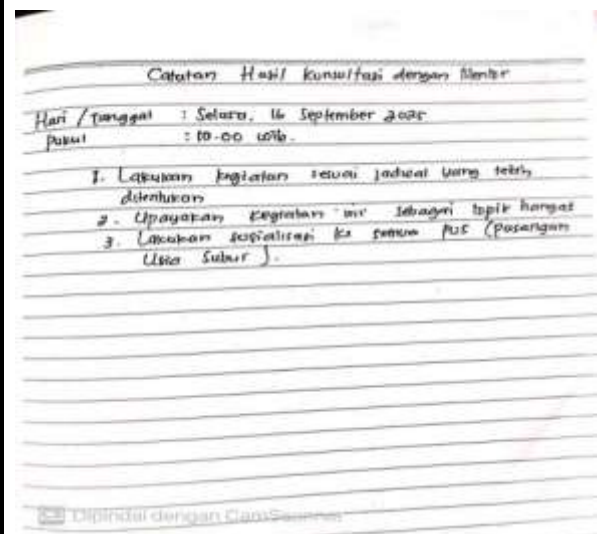 Catatan Hasil Kunsultasi dengan Mentor
Hari / Tanggal : Selasa, 16 September 2025
Pukul : 10.00 wib.
1. Lakukan kegiatan sesuai jadwal yang telah
ditentukan
2. Upayakan kegiatan ini sebagai topik hangat
3. Lakukan sosialisasi ke semua PUS (Pasangan
Usia Subur).
CS Dipindai dengan CamScanner